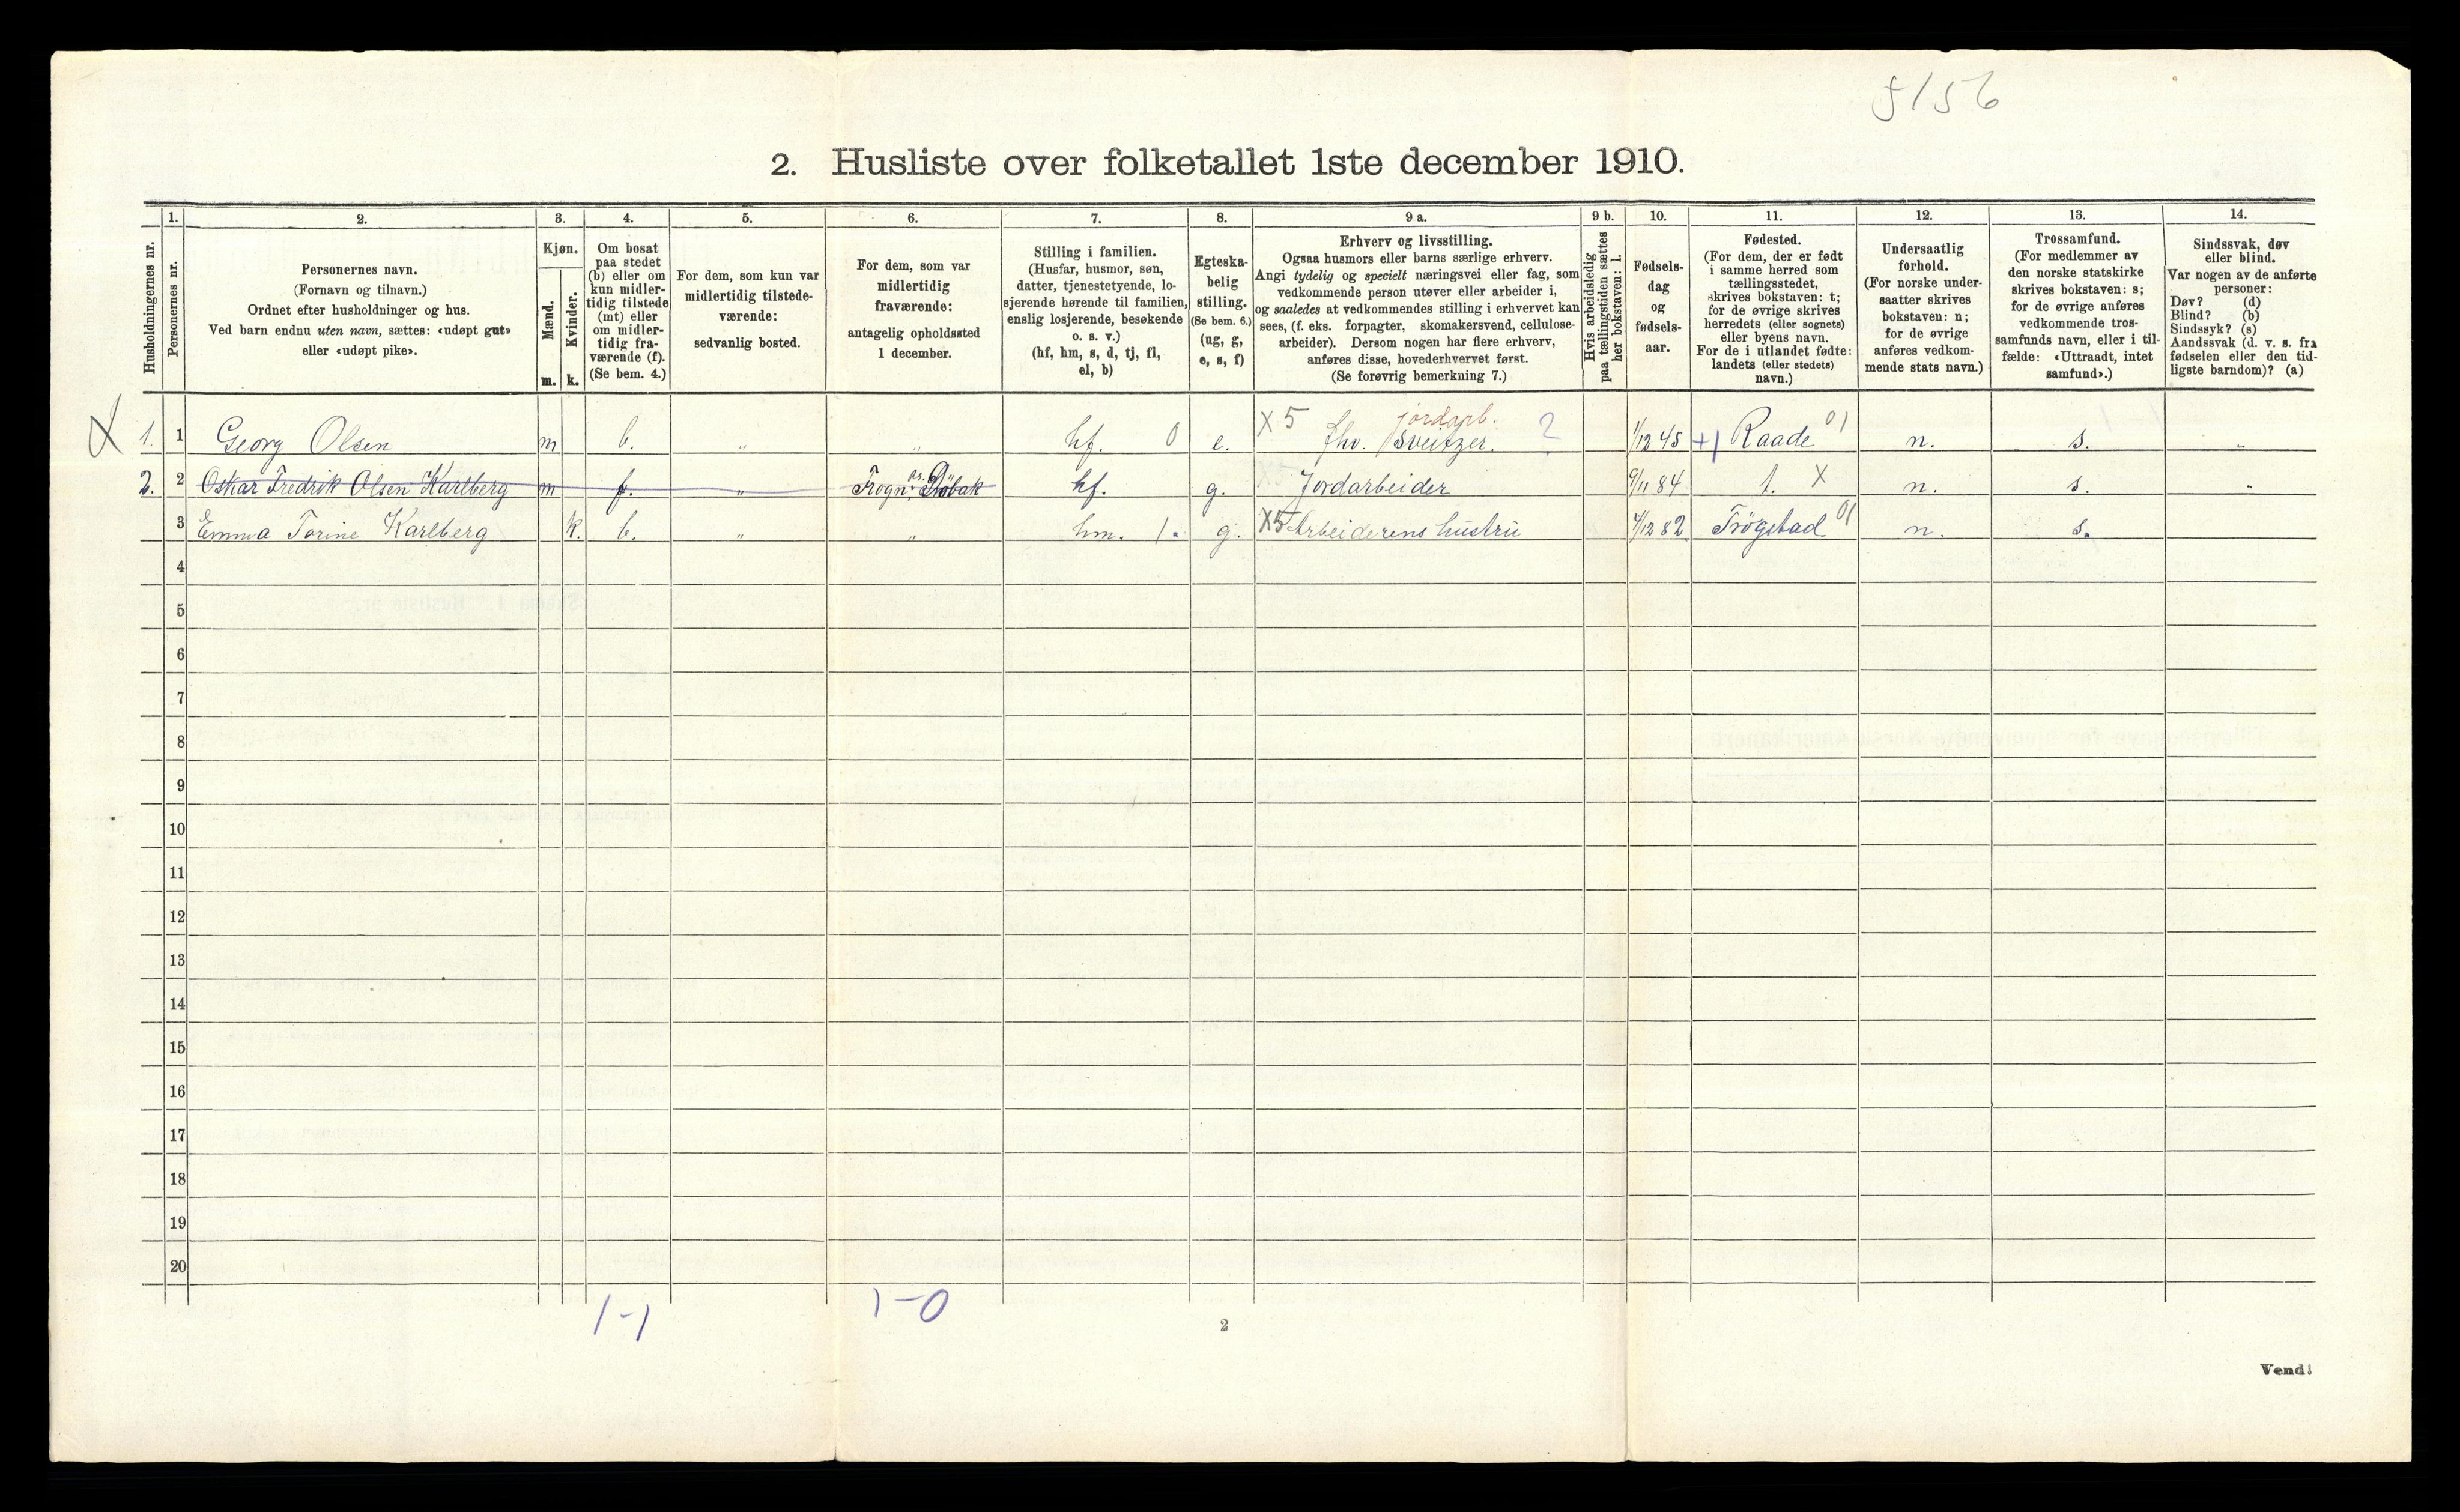 5156
2. Husliste over folketallet 1ste december 1910.
Husholdningernes nr.
1.
Personernes nr.
2.
Personernes navn.
(Fornavn og tilnavn.)
Ordnet efter husholdninger og hus.
Ved barn endnu uten navn, sættes: «udøpt gut»
eller «udøpt pike».
3.
Kjøn.
Mænd.
Kvinder.
m. k.
4.
Om bosat
paa stedet
(b) eller om
kun midler-
tidig tilstede
(mt) eller
om midler-
tidig fra-
værende (f).
(Se bem. 4.)
5.
For dem, som kun var
midlertidig tilstede-
værende:
sedvanlig bosted.
6.
For dem, som var
midlertidig
fraværende:
antagelig opholdssted
1 december.
7.
Stilling i familien.
(Husfar, husmor, søn,
datter, tjenestetyende, lo-
sjerende hørende til familien,
enslig losjerende, besøkende
o. s. v.)
(hf, hm, s, d, tj, fl,
el, b)
8.
Egteska-
belig
stilling.
(Se bem. 6.)
(ug, g,
e, s, f)
9 a.
Erhverv og livsstilling.
Ogsaa husmors eller barns særlige erhverv.
Angi tydelig og specielt næringsvei eller fag, som
vedkommende person utøver eller arbeider i,
og saaledes at vedkommendes stilling i erhvervet kan
sees, (f. eks. forpagter, skomakersvend, cellulose-
arbeider). Dersom nogen har flere erhverv,
anføres disse, hovederhvervet først.
(Se forøvrig bemerkning 7.)
9 b.
Hvis arbeidsledig
paa tællingstiden sættes
her bokstaven: l.
10.
Fødsels-
dag
og
fødsels-
aar.
11.
Fødested.
(For dem, der er født
i samme herred som
tællingsstedet,
skrives bokstaven: t;
for de øvrige skrives
herredets (eller sognets)
eller byens navn.
For de i utlandet fødte:
landets (eller stedets)
navn.)
12.
Undersaatlig
forhold.
(For norske under-
saatter skrives
bokstaven: n;
for de øvrige
anføres vedkom-
mende stats navn.)
13.
Trossamfund.
(For medlemmer av
den norske statskirke
skrives bokstaven: s;
for de øvrige anføres
vedkommende tros-
samfunds navn, eller i til-
fælde: «Uttraadt, intet
samfund».)
14.
Sindssvak, døv
eller blind.
Var nogen av de anførte
personer:
Døv? (d)
Blind? (b)
Sindssyk? (s)
Aandssvak (d. v. s. fra
fødselen eller den tid-
ligste barndom)? (a)
X 1. 1 Georg Olsen m b. " " hf. 0 e. X5 fhv. Sveitzer. jordarb. ? 1/12 45 +1 Raade 01 n. s. "
2. 2 Oskar Fredrik Olsen Karlberg m f. " Frogn pr. Drøbak hf. g. X5 Jordarbeider 9/11 84 t. X n. s. "
3 Emma Torine Karlberg k. b. " " hm. 1. g. X5 Arbeiderens hustru 4/12 82 Trøgstad 01 n. s.
4
5
6
7
8
9
10
11
12
13
14
15
16
17
18
19
20
1-1 1-0
2
Vend!